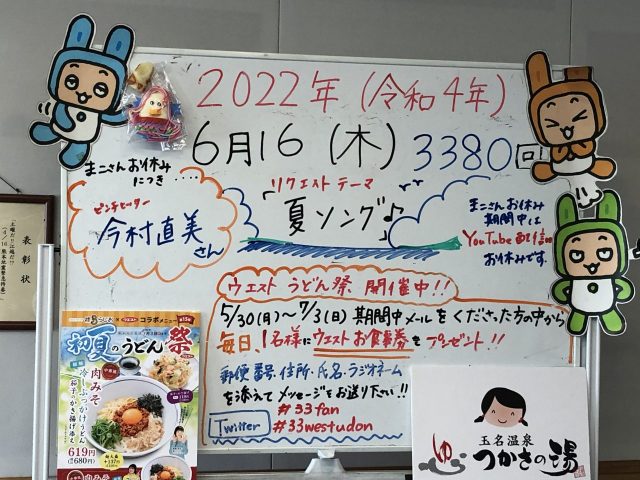 2022年(令和4年)
6月16(木) 3380回
まニさんお休み
につき・・・・
ピンチヒッター
今村直美さん
「リクエストテーマ
夏ソング」♪
まニさんお休み
期間中は
YouTube配信の
お休みです。
ウエスト うどん祭 開催中!!
5/30(月)〜7/3(日)期間中メールをくださった方の中から
毎日、1名様にウエストお食事券をプレゼント!!
郵便番号・住所・氏名・ラジオネーム
を添えてメッセージをお送り下さい!!
Twitter
#33fan
#33westudon
表彰状
コラボメニュー
初夏のうどん祭
肉みそ
冷しぶっかけうどん
茄子のかき揚げ添え
619円
(税込680円)
玉名温泉
つかさの湯
ゆ